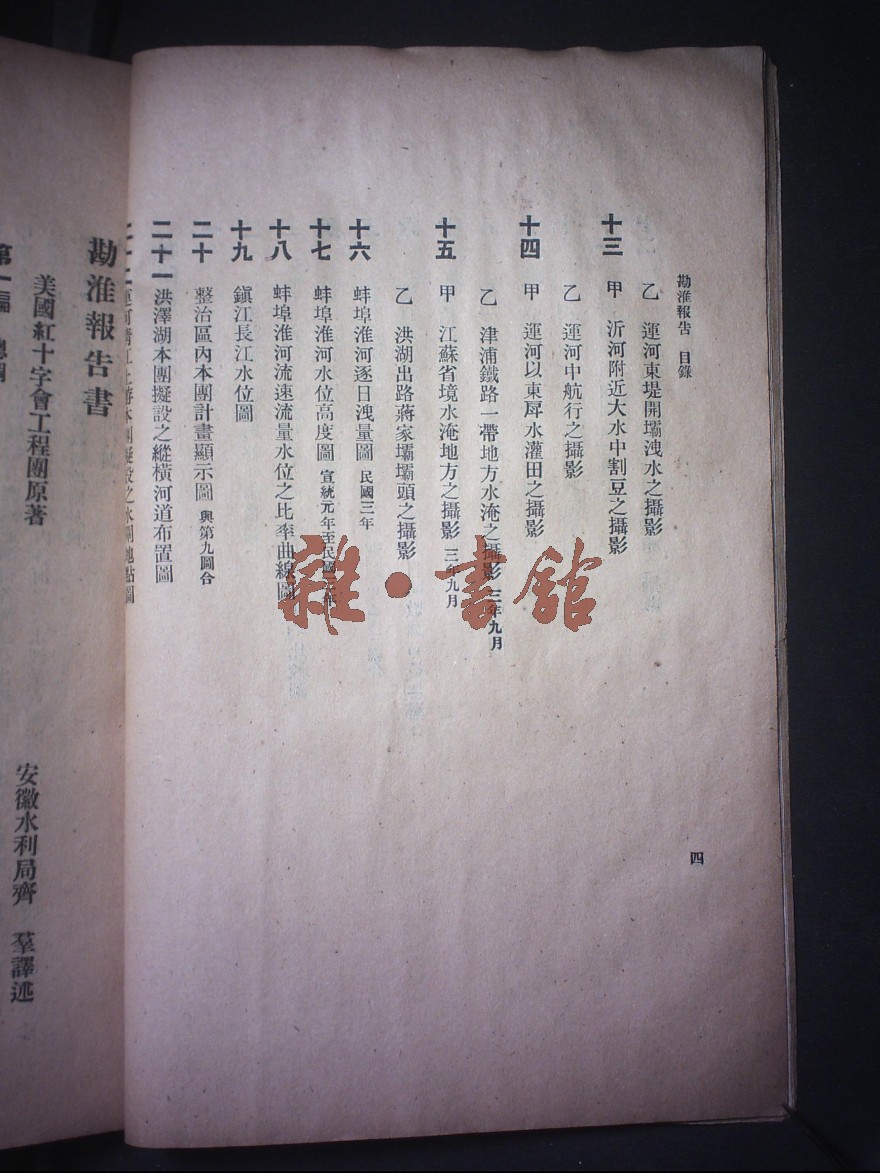 勘淮報告 目錄
乙 運河東堤開壩洩水之攝影
十三 甲 沂河附近大水中割豆之攝影
乙 運河中航行之攝影
十四 甲 運河以東戽水灌田之攝影
乙 津浦鐵路一帶地方水淹之攝影 三年九月
十五 甲 江蘇省境水淹地方之攝影 三年九月
乙 洪湖出路蔣家壩壩頭之攝影
十六 蚌埠淮河逐日洩量圖 民國三年
十七 蚌埠淮河水位高度圖 宣統元年至民國三年
十八 蚌埠淮河流速流量水位之比率曲線圖
十九 鎮江長江水位圖
二十 整治區內本團計畫顯示圖 與第九圖合
二十一 洪澤湖本團擬設之縱橫河道布置圖
二十二 運河清江上游本團擬設之水閘地點圖
四
勘淮報告書
美國紅十字會工程團原著
安徽水利局齊 羣譯述
第一編 總綱
雜·書館